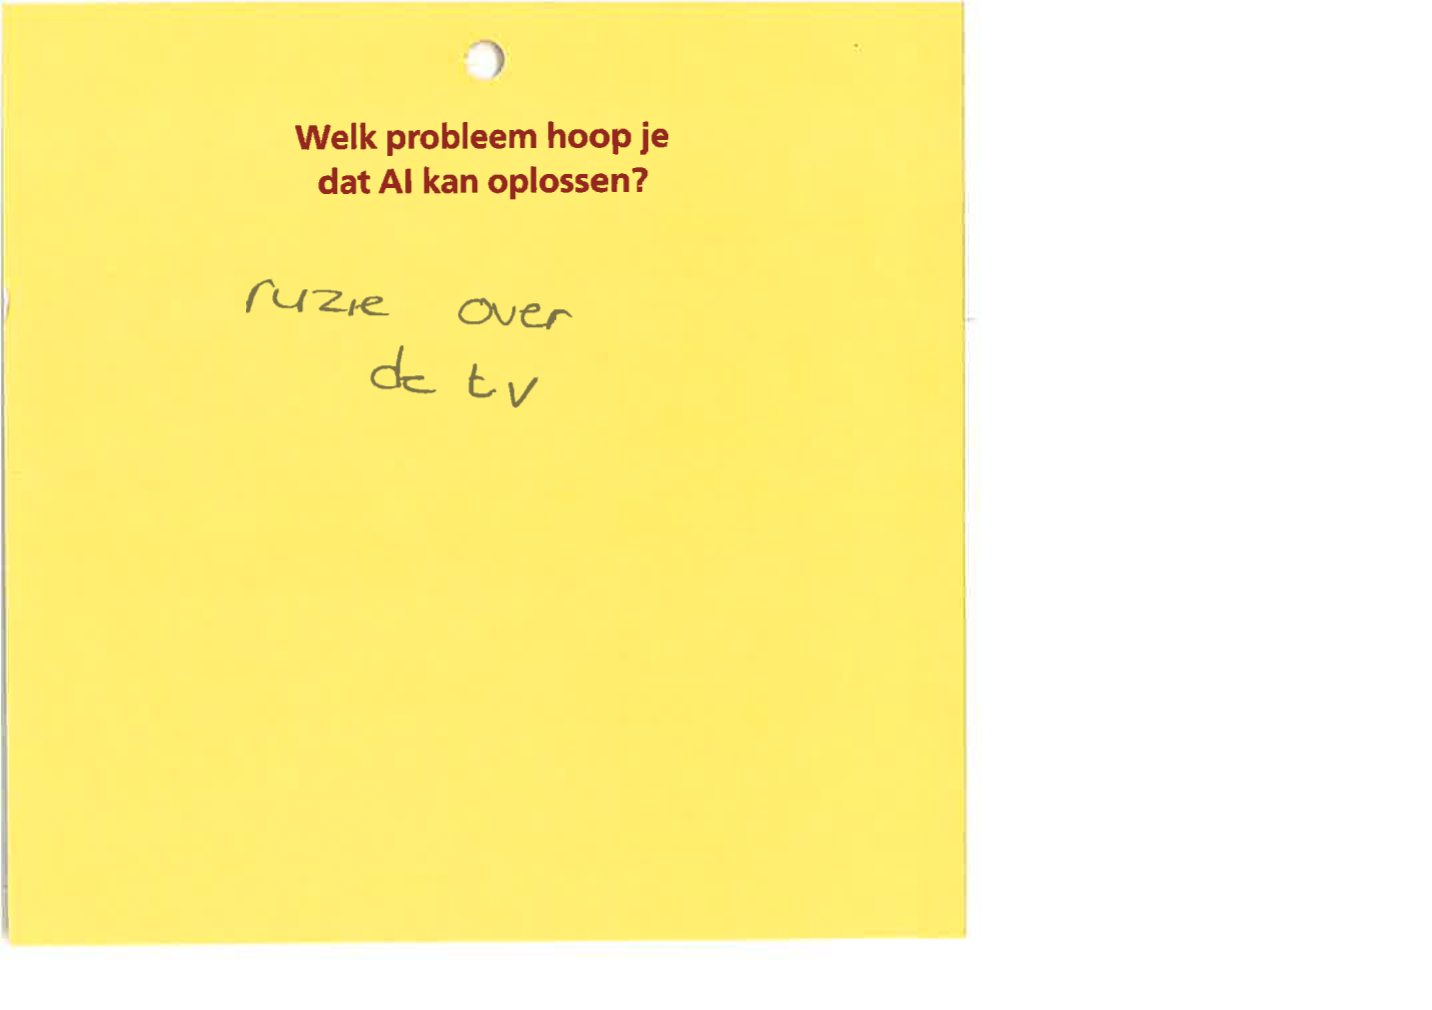 Welk probleem hoop je
dat AI kan oplossen?
ruzie over
de tv